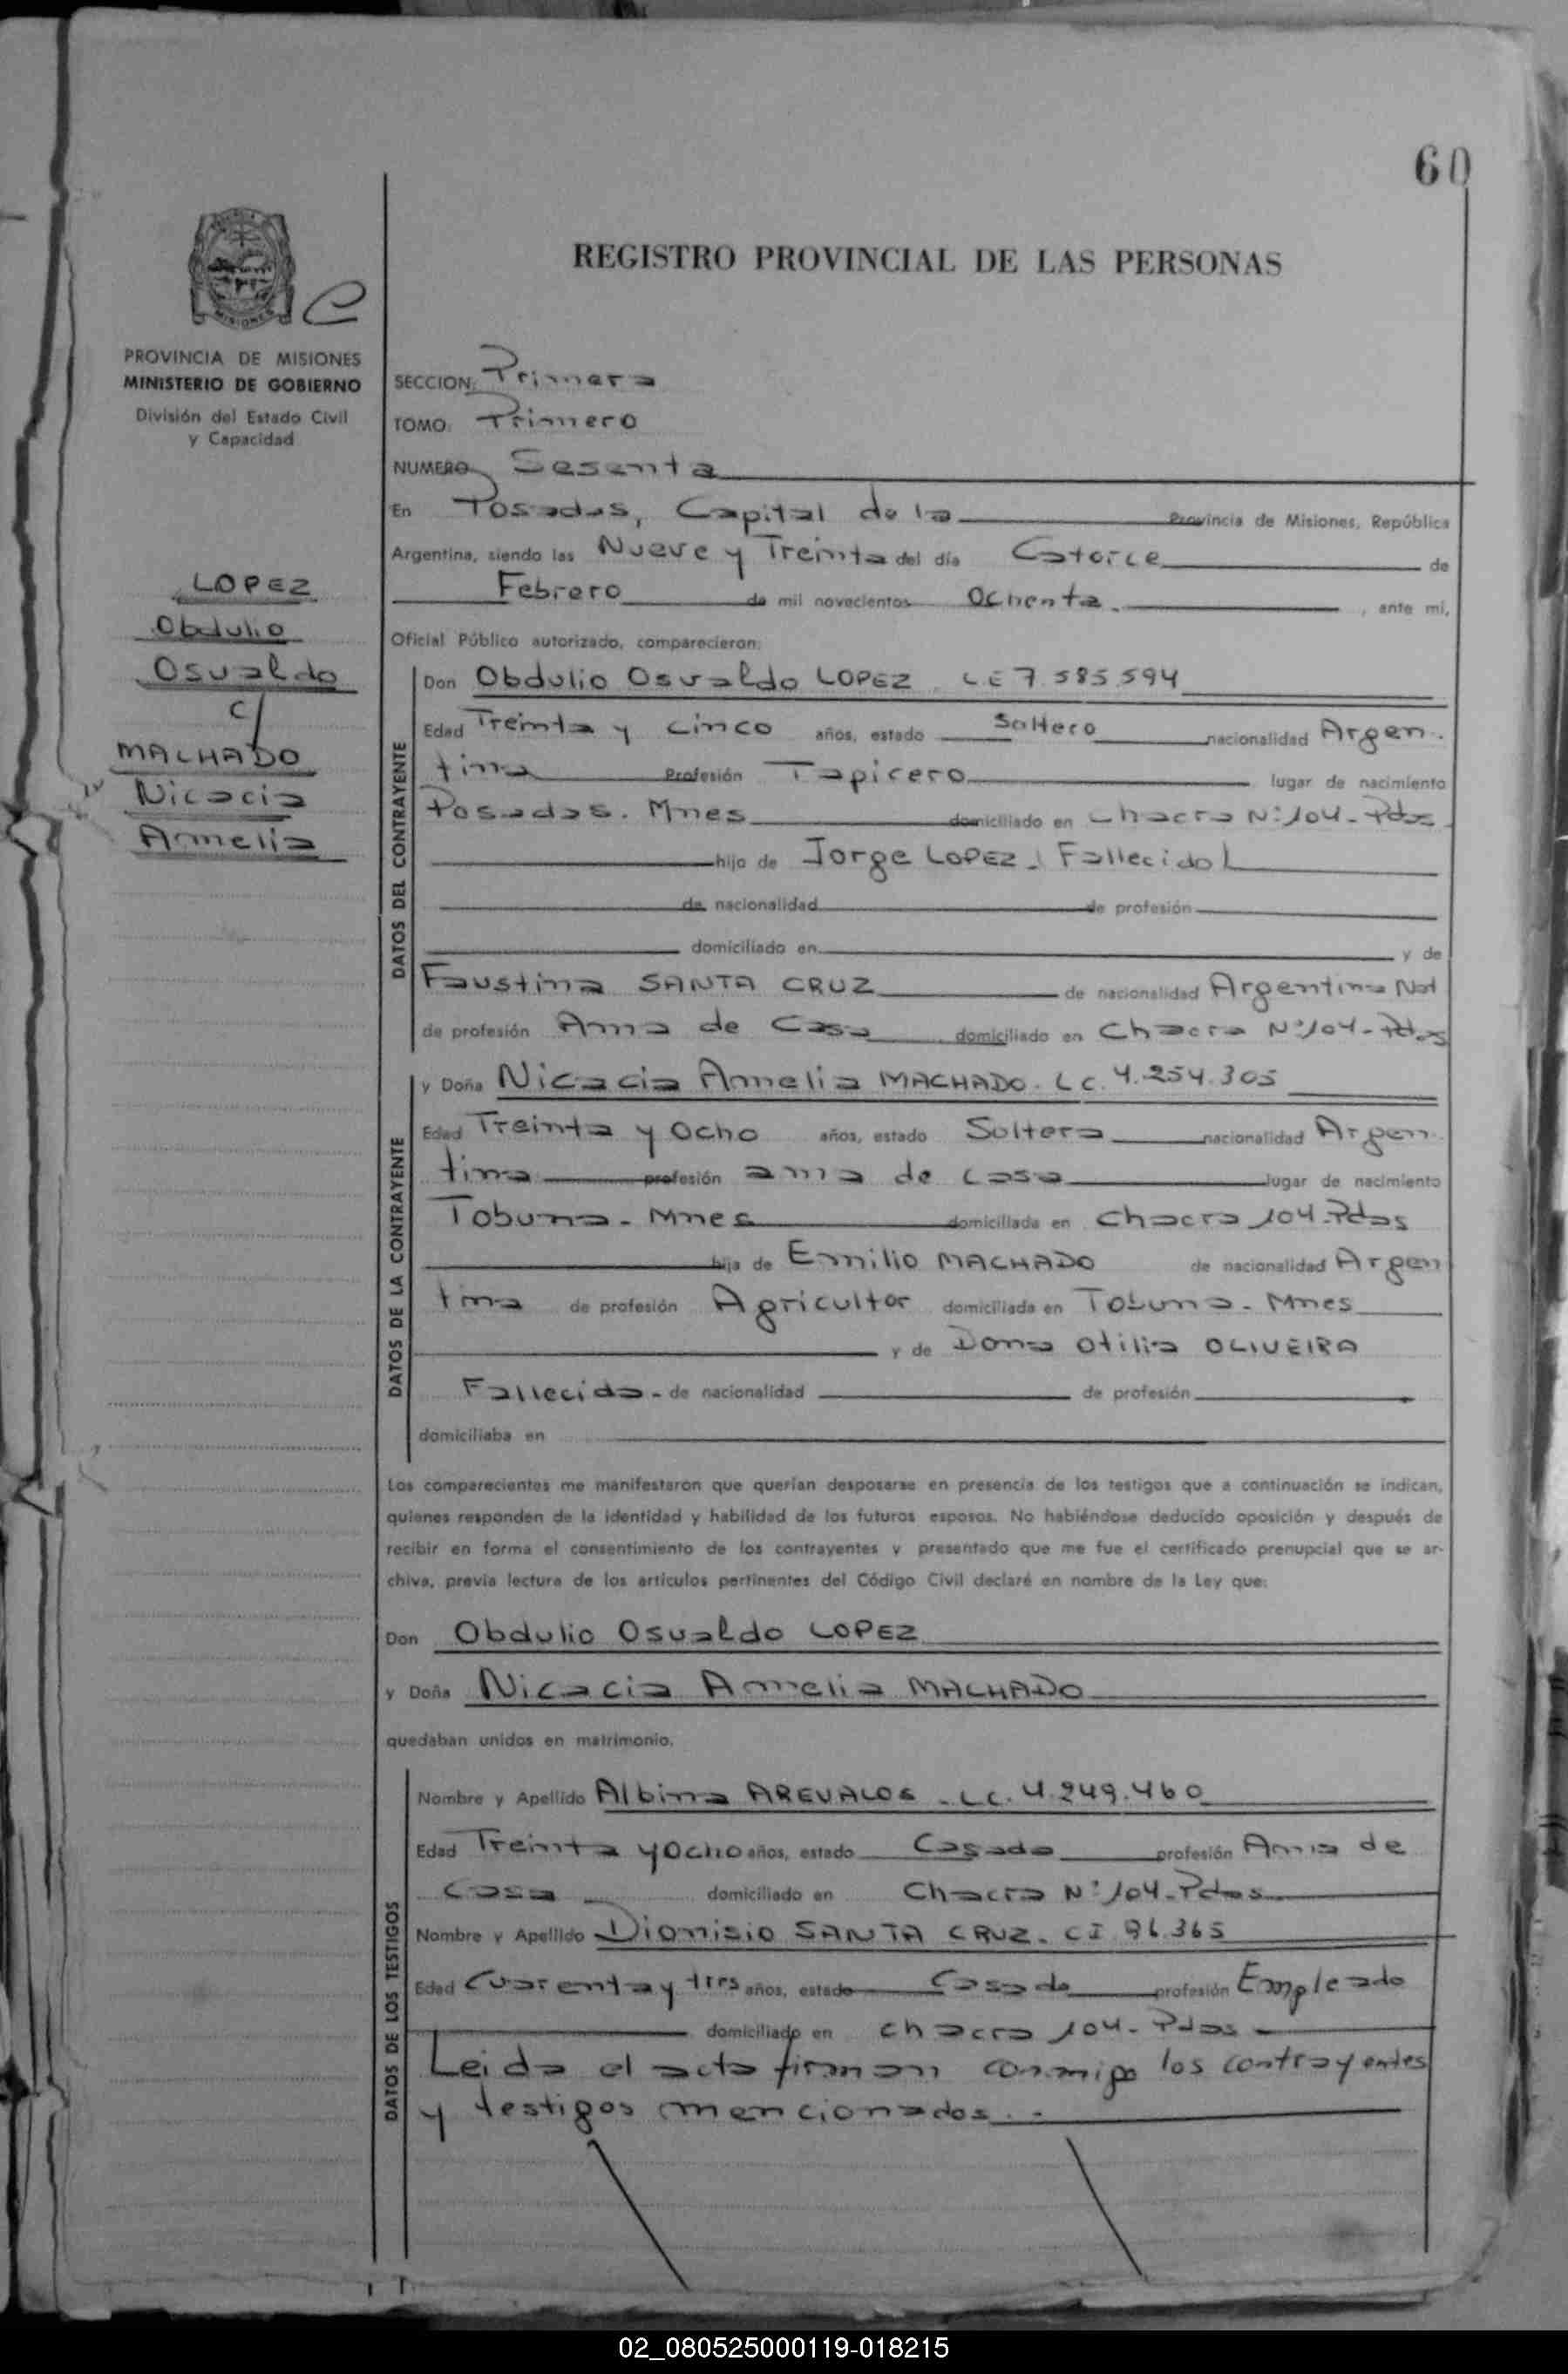 60
REGISTRO PROVINCIAL DE LAS PERSONAS
PROVINCIA DE MISIONES
MINISTERIO DE GOBIERNO
División del Estado Civil
y Capacidad
LOPEZ
Obdulio
Osvaldo
c/
MACHADO
Nicacia
Armelia
SECCION: Primera
TOMO: Primero
NUMERO Sesenta
En Posadas, Capital de la Provincia de Misiones, República
Argentina, siendo las Nueve y Treinta del día Catorce de
Febrero de mil novecientos Ochenta. , ante mi,
Oficial Público autorizado, comparecieron:
DATOS DEL CONTRAYENTE
Don Obdulio Osvaldo LOPEZ LE 7.585.594
Edad Treinta y cinco años, estado Soltero nacionalidad Argen
tina Profesión Tapicero lugar de nacimiento
Posadas. Mnes domiciliado en Chacra Nº 104 - Pdas
hijo de Jorge LOPEZ. (Fallecido)
de nacionalidad de profesión
domiciliado en y de
Faustina SANTA CRUZ de nacionalidad Argentina Nat
de profesión Ama de Casa domiciliado en Chacra Nº 104 - Pdas
DATOS DE LA CONTRAYENTE
y Doña Nicacia Armelia MACHADO. LC. 4.254.305
Edad Treinta y Ocho años, estado Soltera nacionalidad Argen
tina profesión ama de casa lugar de nacimiento
Tobuna - Mnes domiciliada en Chacra 104 - Pdas
hija de Emilio MACHADO de nacionalidad Argen
tina de profesión Agricultor domiciliada en Tobuna - Mnes
y de Dona Otilia OLIVEIRA
Fallecida - de nacionalidad de profesión
domiciliaba en
Los comparecientes me manifestaron que querían desposarse en presencia de los testigos que a continuación se indican,
quienes responden de la identidad y habilidad de los futuros esposos. No habiéndose deducido oposición y después de
recibir en forma el consentimiento de los contrayentes y presentado que me fue el certificado prenupcial que se ar-
chiva, previa lectura de los artículos pertinentes del Código Civil declaré en nombre de la Ley que:
Don Obdulio Osvaldo LOPEZ
y Doña Nicacia Armelia MACHADO
quedaban unidos en matrimonio.
DATOS DE LOS TESTIGOS
Nombre y Apellido Albina AREVALOS - LC. 4.249.460
Edad Treinta y Ocho años, estado Casada profesión Ama de
Casa domiciliado en Chacra Nº 104 - Pdas
Nombre y Apellido Dionisio SANTA CRUZ - CI 96.365
Edad Cuarenta y tres años, estado Casado profesión Empleado
domiciliado en chacra 104 - Pdas
Leida el acta firman conmigo los contrayentes
y testigos mencionados.
02_080525000119-018215